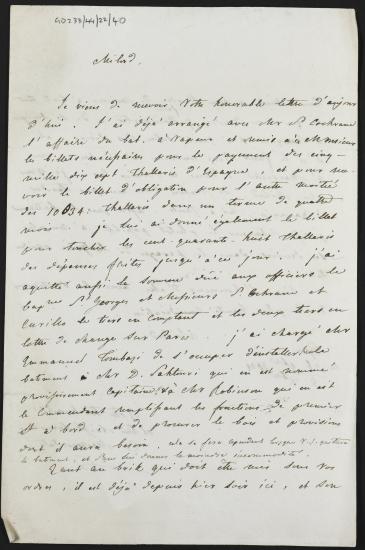 GD233/44/22/40
Milord,
Je viens de recevoir Votre honorable lettre d'aujour
d'hui. J'ai déjà arrangé avec Mr St. Cochrane
l'affaire du bat. à vapeur et remis à Monsieur
les billets nécéssaires pour le payement des cinq
mille dix sept Thallaris d'Espagne, et pour
le billet d'obligation pour l'autre moitié
des 10034. thallaris dans un terme de quatre
mois. je lui ai donné également le billet
pour toucher les cent quarante huit Thallaris
des dépenses faites jusqu'à ce jour. j'ai
aquitté aussi la somme due aux officiers le
St Georges et Messieurs St Cochrane et
le tiers en comptant et les deux tiers en
lettre de change sur Paris. j'ai chargé Mr
Emmanuel Tombazi de s'occuper d'installer sur le
batiment à Mr D. Sahturi qui en est nommé
provisoirement Capitaine, & à Mr Robinson qui en est
le Commandant remplissant les fonctions de premier
à bord, et de procurer le bois et provisions
dont il aura besoin. cela se fera cependant lorsque V.S. quittera
le batiment, et sans lui donner la moindre incommodité.
Quant au brik qui doit être mis sous vos
ordres, il est déjà depuis hier soir ici, et son